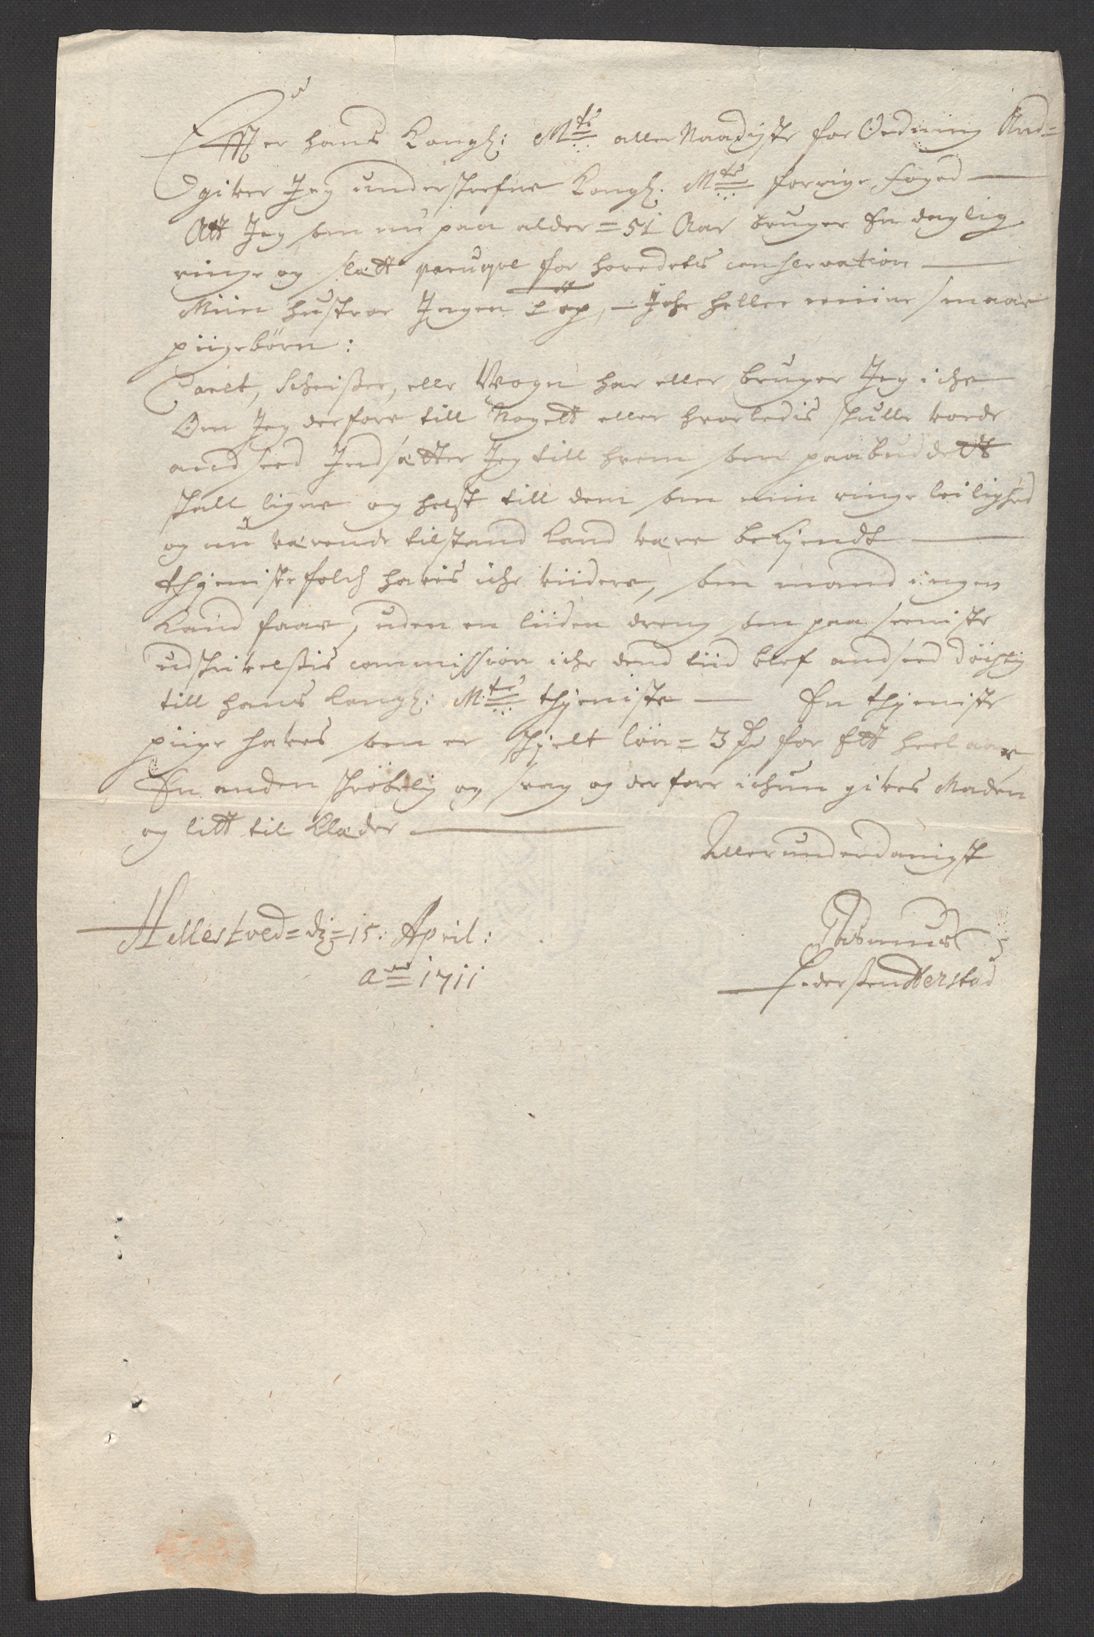 Effter hans Kongl: Mtz aller Naadigste for Ordning And=
Ogifver Jeg underschrefne Kongl. Mtz forrige foged —
Att Jeg som nu paa alder = 51 Aar bruger En daglig
ringe og slett paruqve for hovedetz conservation —
Miin hustroe Ingen töp, — Iche heller miine smaae
piigebörn:
Caret, Scheisser, eller Wogn har eller bruger Jeg iche
Om Jeg derfore till Noget eller hvorledis schulle vorde
andseed Indsetter Jeg till hvem som paabuddett
schall ligne og helst till dem som min ringe leilighed
og nu verende tilstand kand være bekiendt —
thienistefolch hafves iche viidere, som mand ingen
kand faae, uden en liiden dreng som paa seeniste
udschrifvelsis commission iche dend tiid blef andseed döchtig
till hans kongl: Mtz thieniste — En thieniste
piige hafves som er schielt lön = 3 for Ett heel aar
En anden schröbelig og svag og derfore ichun gifves Maden
og litt til klæder —
Aller underdanigst
Hellestvedt = dz = 15: April:
Ao 1711
Rasmus
Pedersen Herstad